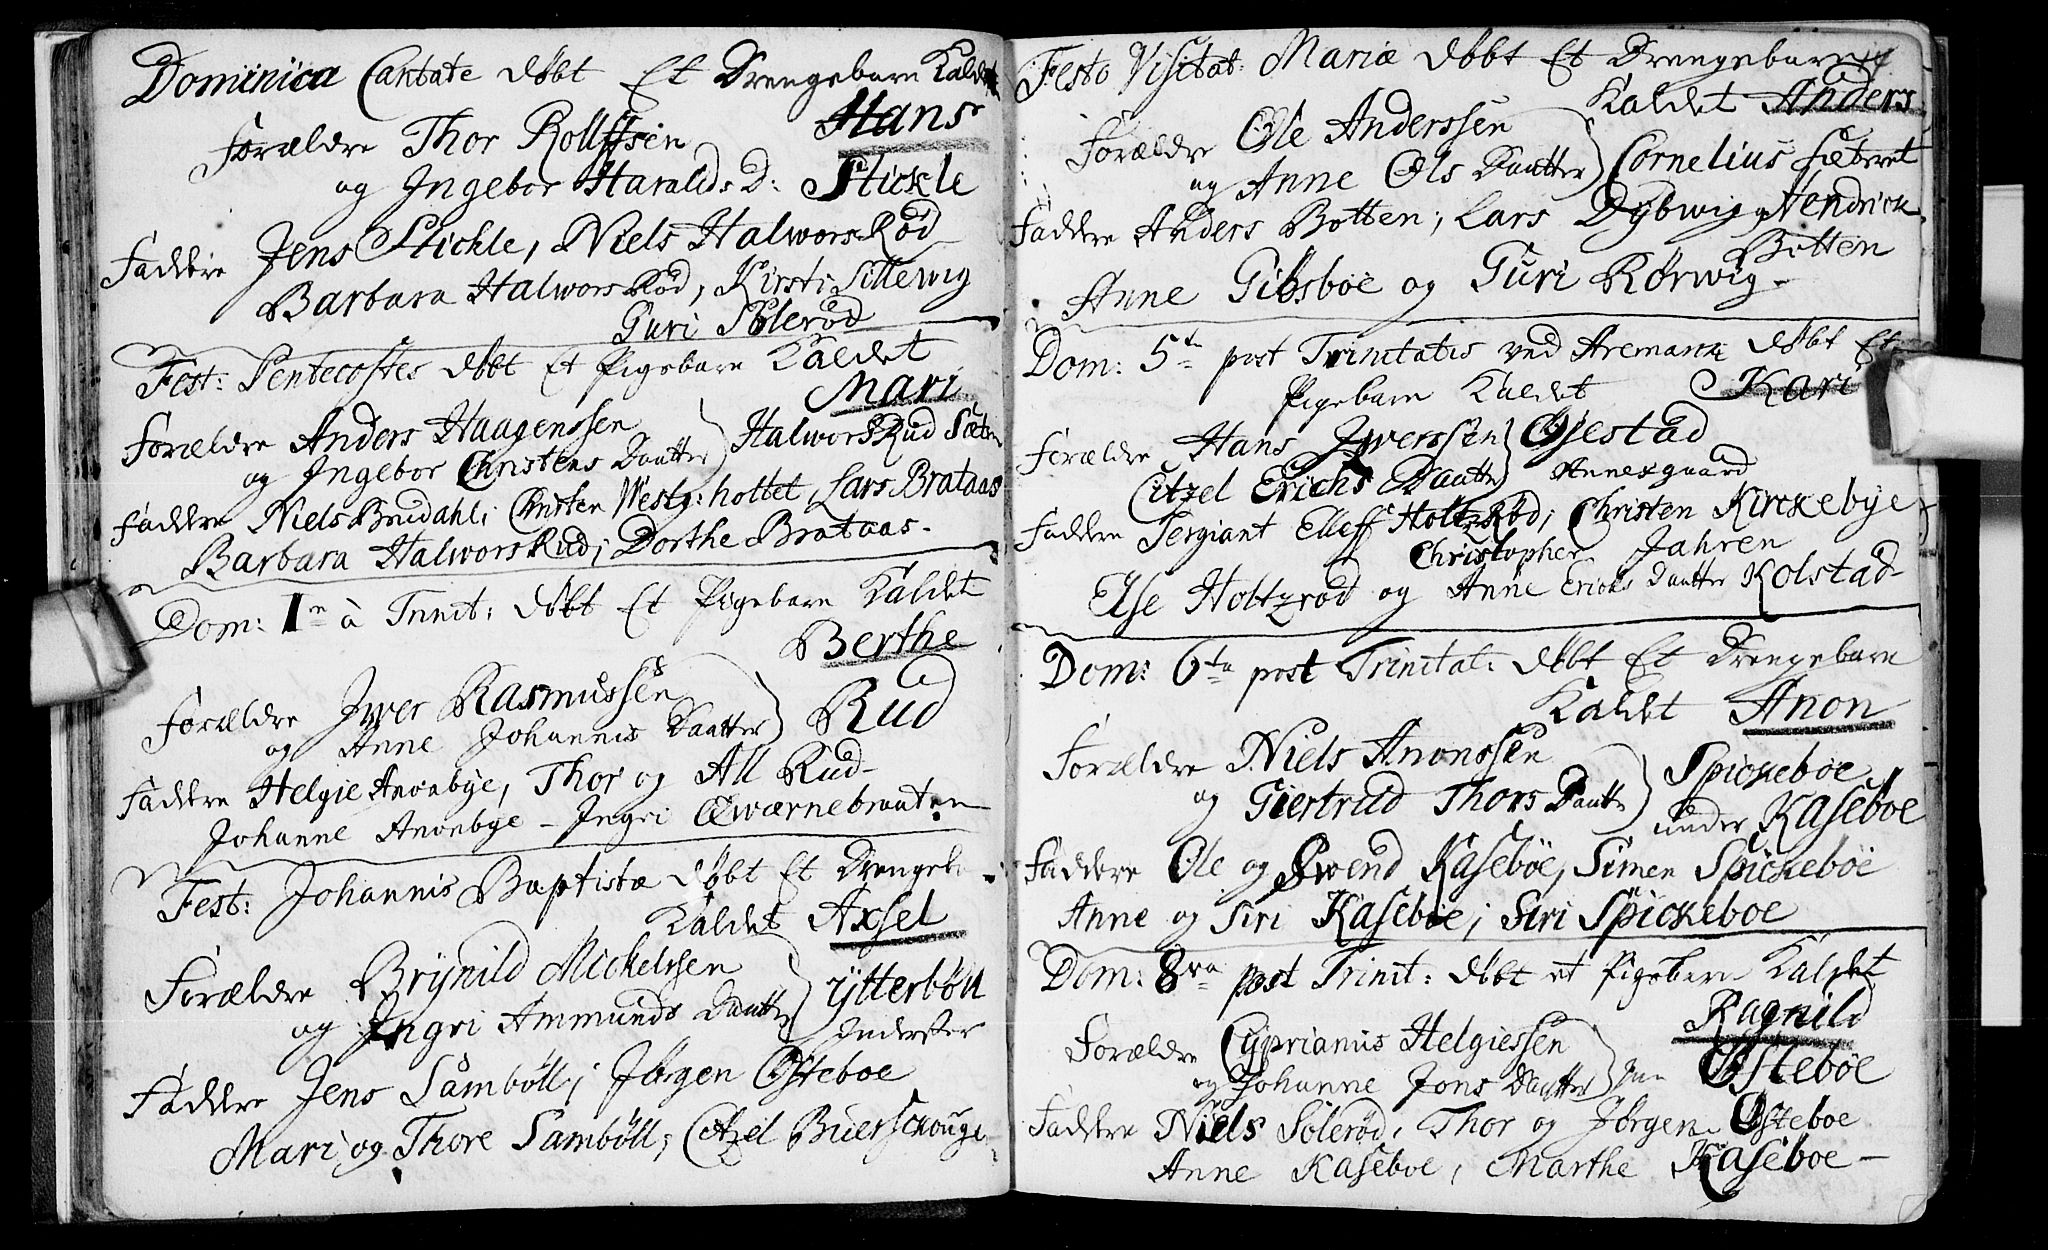 Dominica Cantate døbt Et Drengebarn Kaldet
Hans
Forældre Thor Rollfsen
og Ingebor Haralds D: Stickle
Faddere Jens Stichle, Niels Halwors Rød
Barbara Halwors Rød, Kirsti Sillewig
Guri Sølerød
Fest: Pentecostes døbt Et Pigebarn Kaldet
Mari
Forældre Anders Haagenssen
og Ingebor Christens Daatter } Halwors Rud Sæter
Faddere Niels Brudahl; Christen Westg: hottet, Lars Brataas
Barbara Halwors Rud; Dorthe Brataas.
Dom: 1ma à Trinit: døbt Et Pigebarn Kaldet
Berthe
Forældre Iwer Rasmussen
og Anne Johannis Daatter } Rud
Faddere Helgie Anonbye, Thor og All Rud
Johanne Anonbye - Ingri Qwærnebraaten
Fest: Johannis Baptistæ døbt Et Drengeb:
Kaldet Axsel
Forældre Brynild Michelssen
og Ingri Ammunds Daatter } ytterbøll
Inderster
Faddere Jens Sambøll; Jørgen Østeboe
Mari og Thore Sambøll; Citzel Buerschouge
Festo Visitat: Mariæ døbt Et Drengebarn
Kaldet Anders
Forældre Ole Anderssen
og Anne Ols Daatter } Cornelius Sæteret
Faddere Anders Botten; Lars Dybwig, Hendrick
Botten
Anne Gibsboe og Guri Rørwig
Dom: 5ta post Trinitatis ved Aremark døbt Et
Pigebarn Kaldet Kari
Forældre Hans Iwerssen } Øjestad
Citzel Erichs Daatter Annexgaard
Faddere Sergiant Elleff Holtzrød; Christen Kirckebye
Christopher Jahren
Else Holtzrød og Anne Erichs Daatter Kolstad
Dom: 6ta post Trinitat: døbt Et Drengebarn
Kaldet Anon
Forældre Niels Anonssen
og Giertrud Thors Daatter } Spickeboe
under Kaseboe
Faddere Ole og Swend Kasebøe, Simen Spickebøe
Anne og Siri Kaseboe; Siri Spickeboe
Dom: 8va post Trinit: døbt et Pigebarn Kaldet
Ragnild
Forældre Cyprianus Helgiessen
og Johanne Jons Daatter } Østebøe
Faddere Niels Sølerød, Thor og Jørgen Østeboe
Anne Kaseboe, Marthe Kaseboe